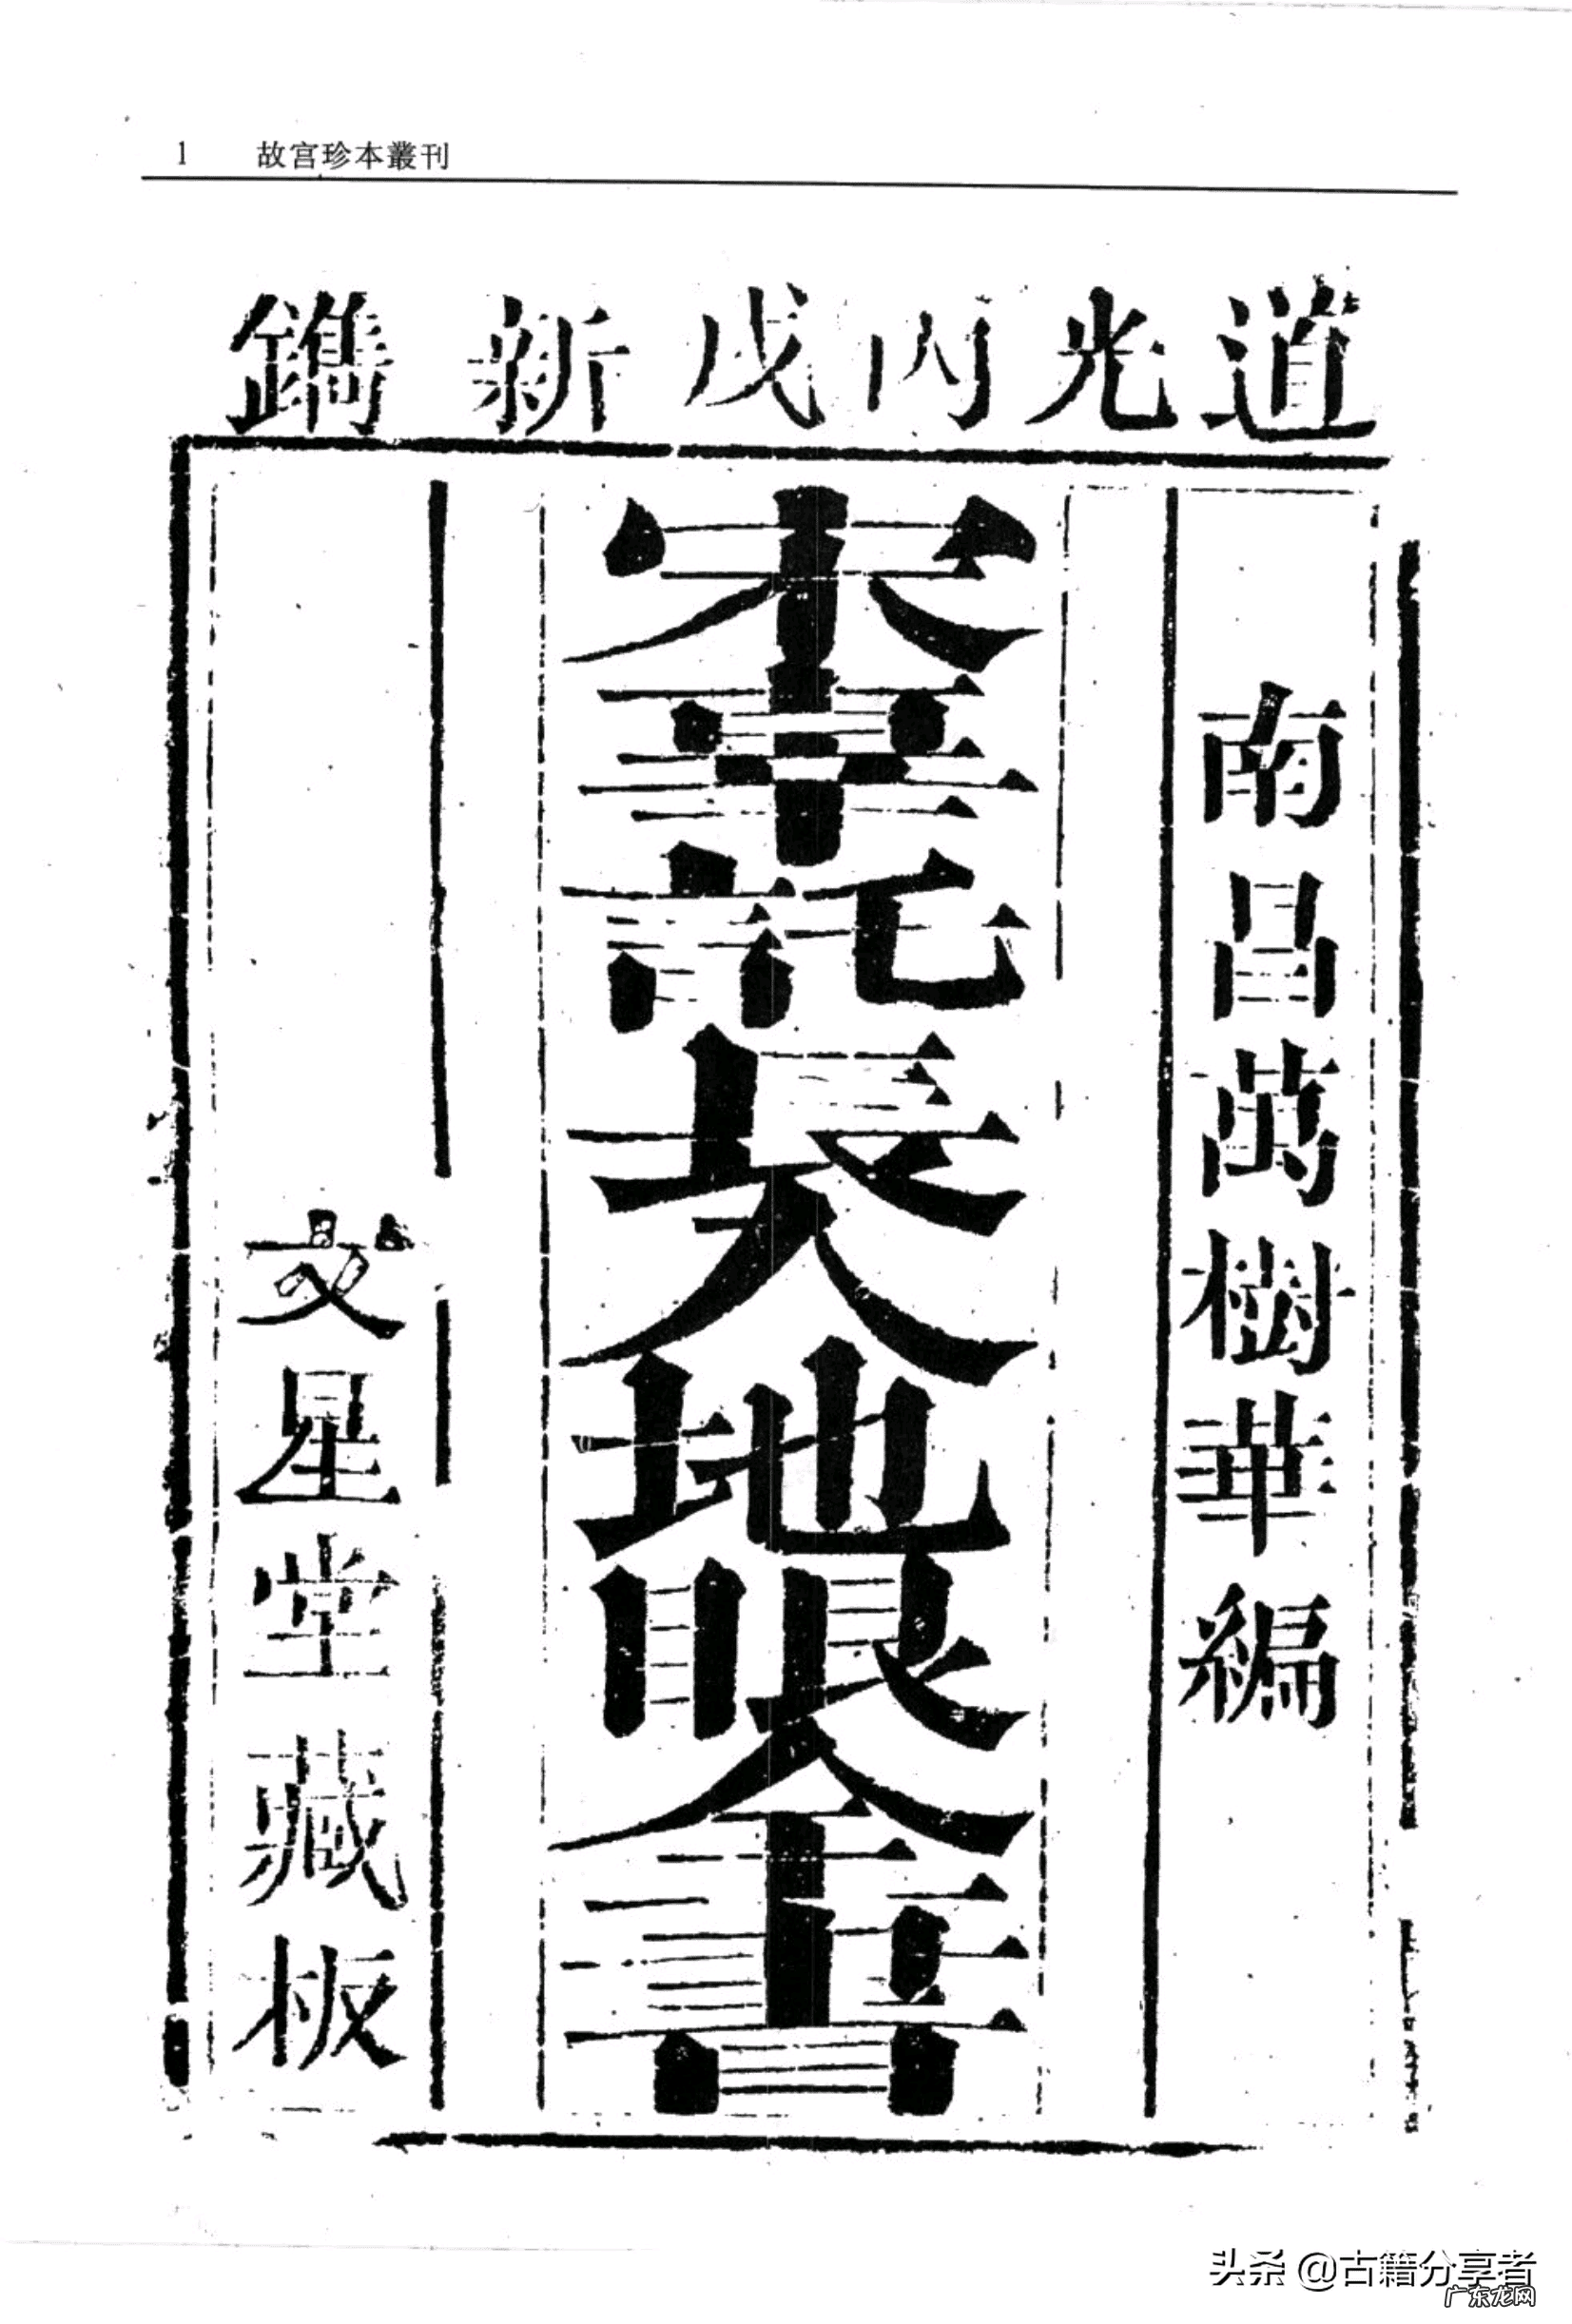 1 故宫珍本叢刊
道光丙戌新鐫
南昌萬樹華編
宋辜託長入地眼全書
文星堂藏板
头条 @古籍分享者
广东龙网